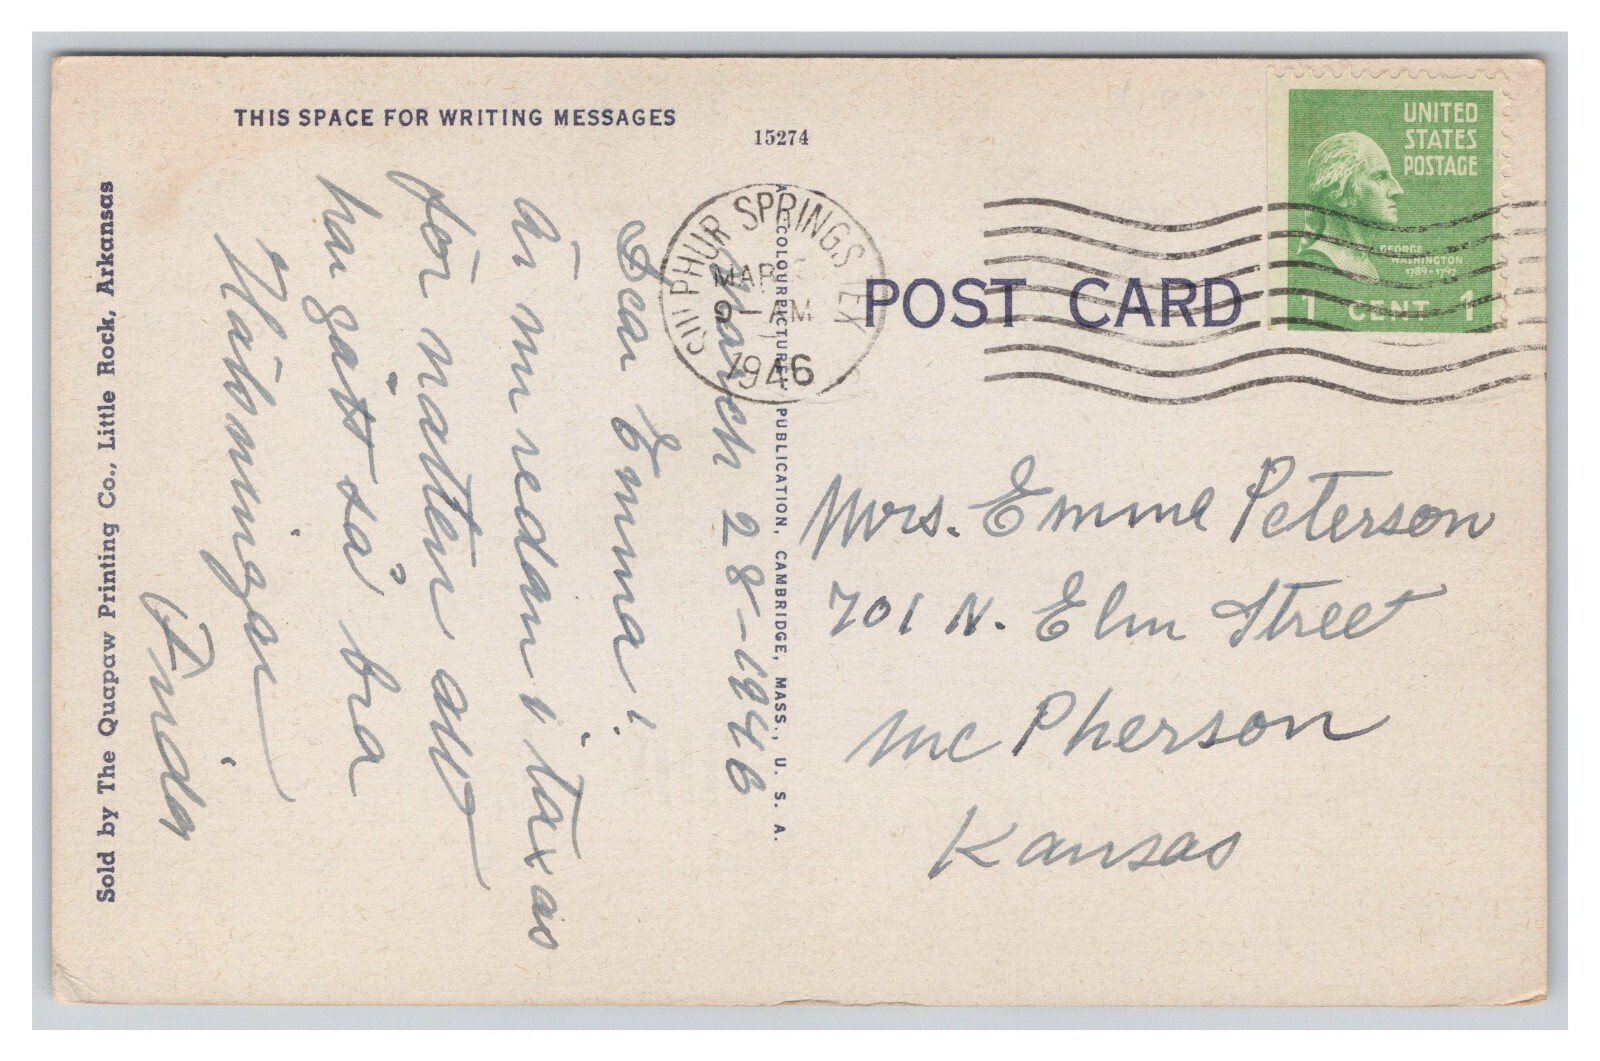 THIS SPACE FOR WRITING MESSAGES
15274
March 28-1946
Dear Emma!
Är nu redan i Taxas
för natten allt
har gått så bra
Hälsningar
Sold by The Quapaw Printing Co., Little Rock, Arkansas
A "COLOURPICTURE" PUBLICATION, CAMBRIDGE, MASS., U. S. A.
SULPHUR SPRINGS TEX
MAR
9 - AM
1946
POST CARD
UNITED
STATES
POSTAGE
GEORGE
WASHINGTON
1789-1797
1 CENT 1
Mrs. Emma Peterson
701 N. Elm Street
Mc Pherson
Kansas